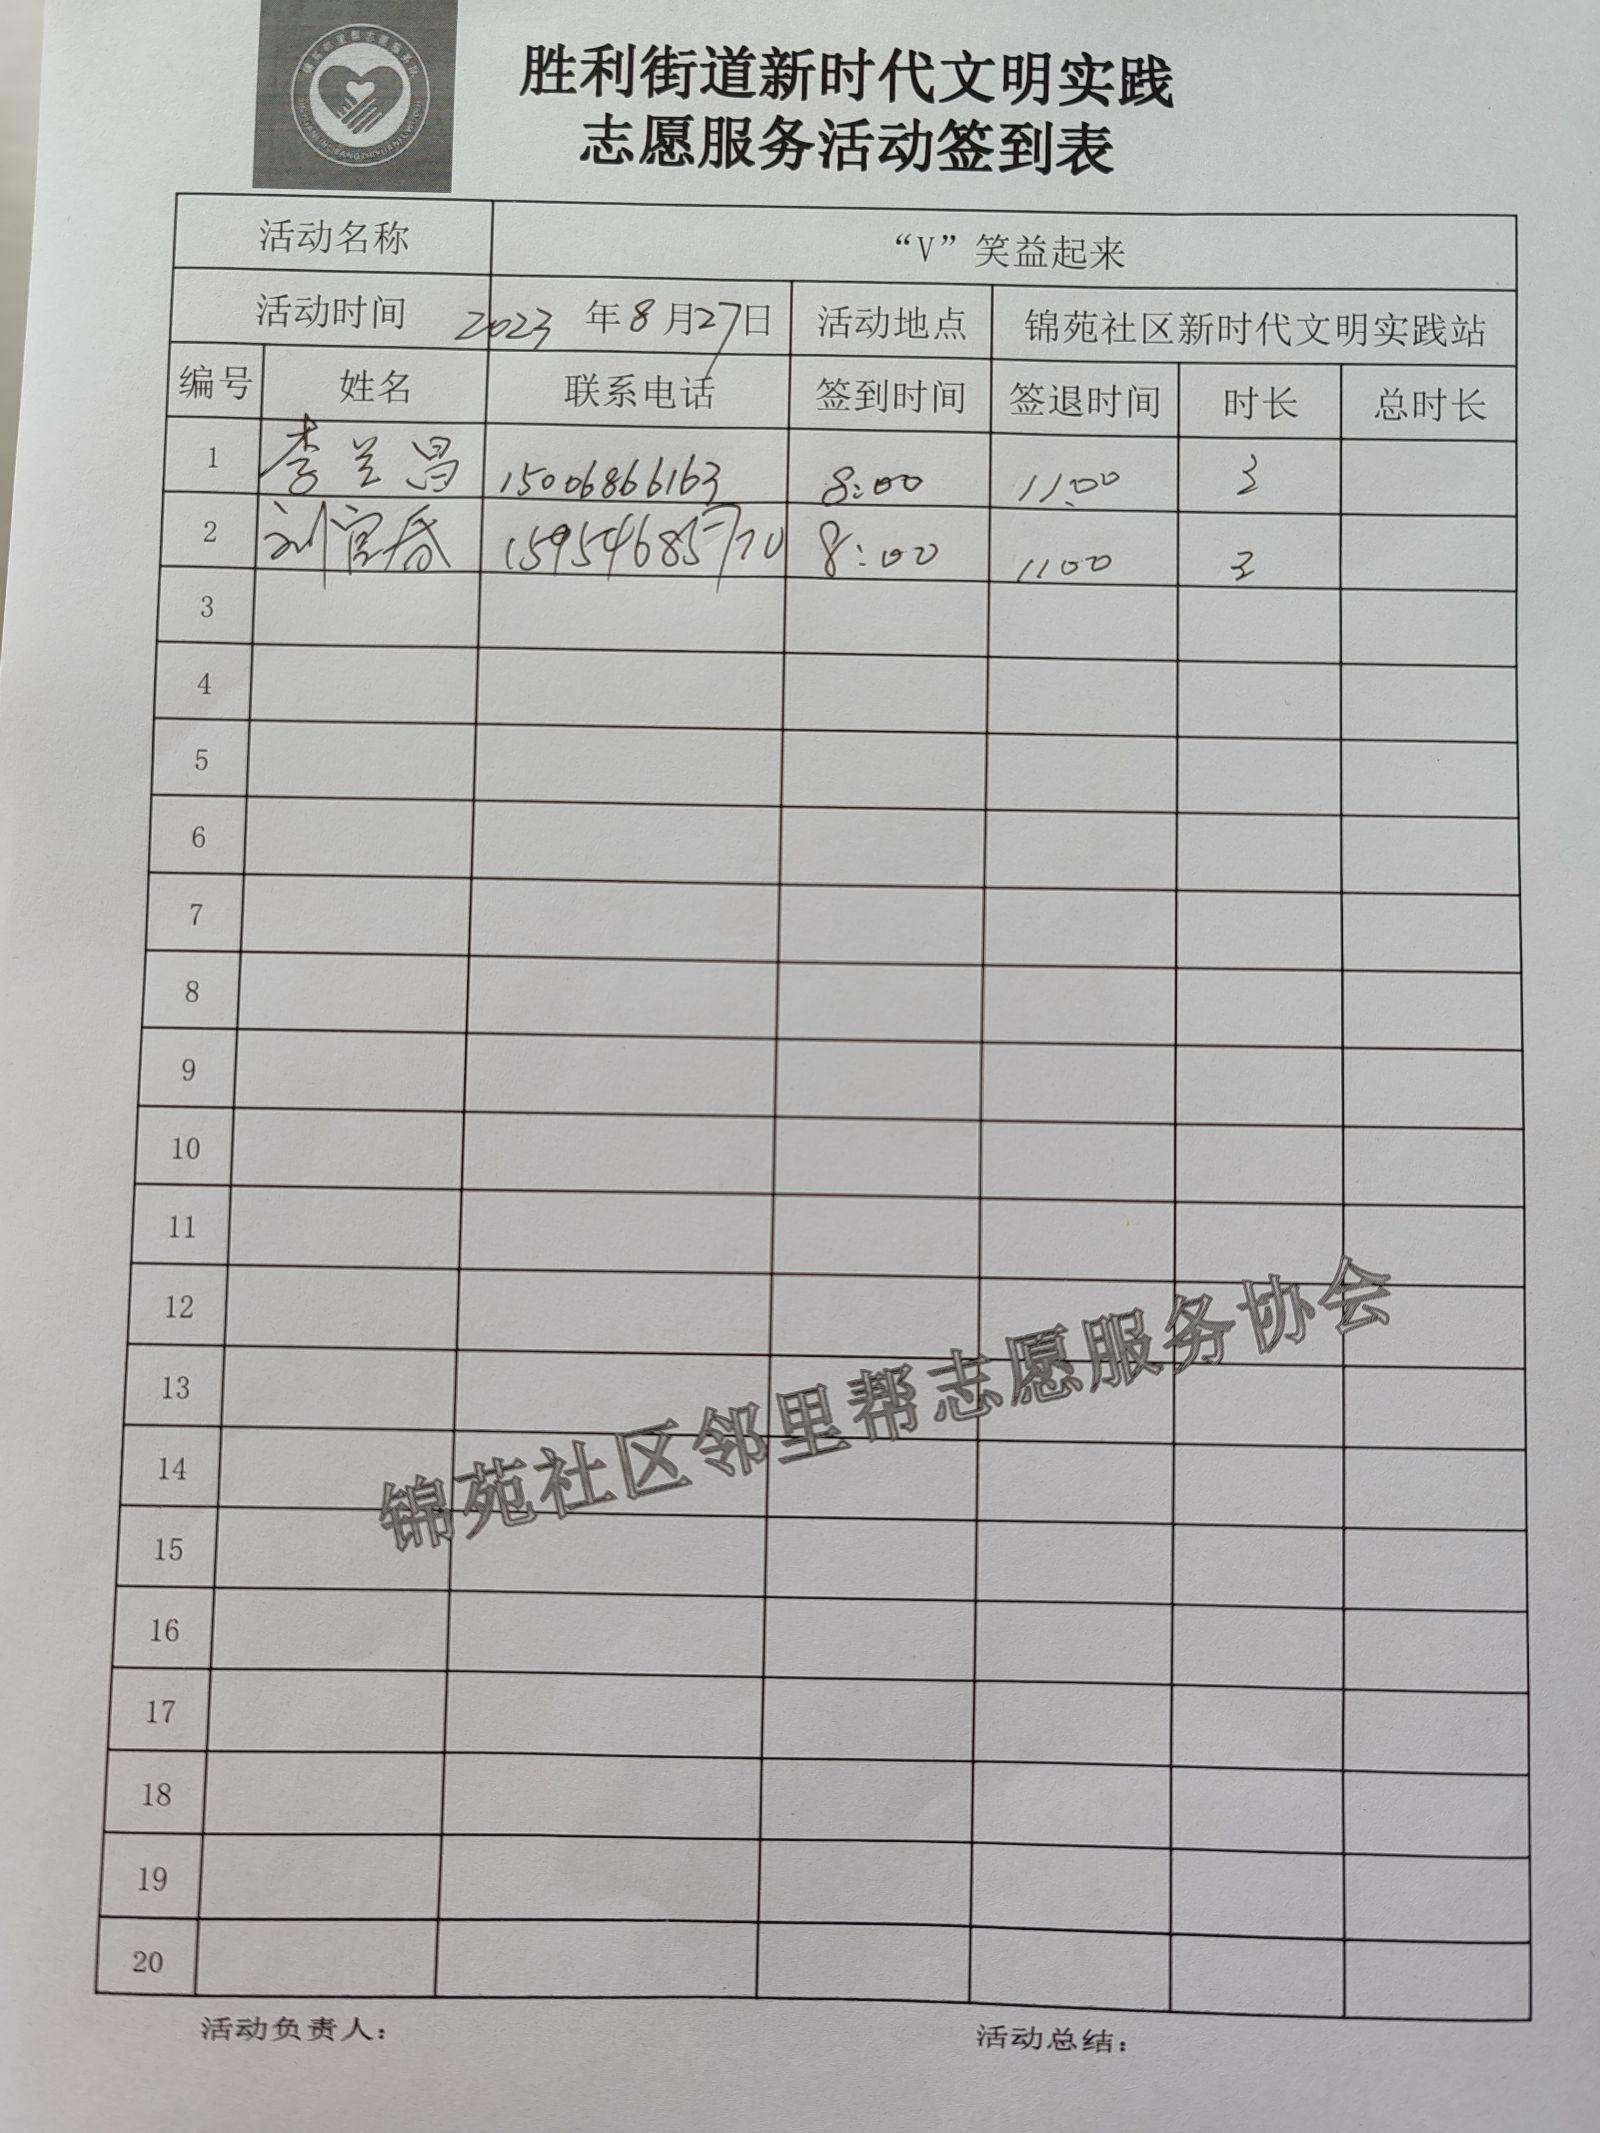 胜利街道新时代文明实践
志愿服务活动签到表
活动名称 “V”笑益起来
活动时间 2023 年 8 月 27 日 活动地点 锦苑社区新时代文明实践站
编号 姓名 联系电话 签到时间 签退时间 时长 总时长
1 李兰昌 15006866163 8:00 11:00 3
2 刘官 8:00 1100 3
3
4
5
6
7
8
9
10
11
12
13
14
15
16
17
18
19
20
锦苑社区邻里帮志愿服务协会
活动负责人： 活动总结：